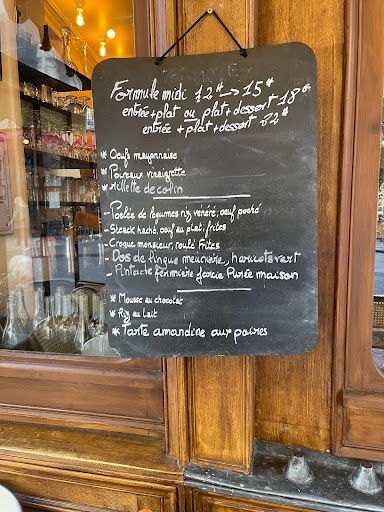 Formule midi 12€ -> 15€
entrée+plat ou plat+dessert 18€
entrée+plat+dessert 22€
* Oeuf mayonnaise
* Poireaux vinaigrette
* Rillette de colin
- Poêlée de légumes riz vénéré, oeuf poché
- Steack haché, oeuf au plat, frites
- Croque monsieur, roulé Frites
- Dos de lingue meunière, haricots vert
- Pintade fermière farcie Purée maison
* Mousse au chocolat
* Riz au Lait
* Tarte amandine aux poires